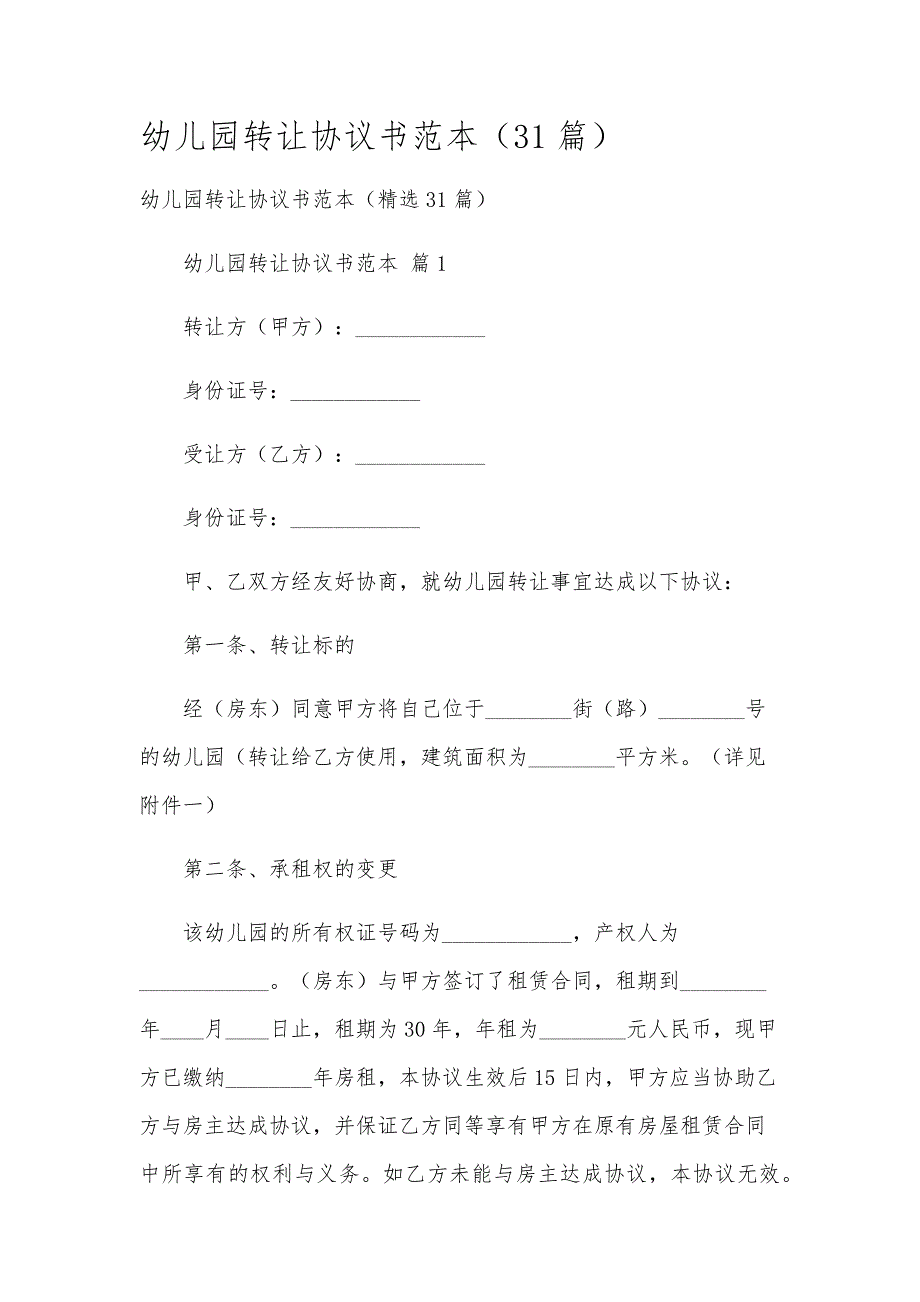 幼儿园转让协议书范本（31 篇）
幼儿园转让协议书范本（精选 31 篇）
幼儿园转让协议书范本 篇 1
转让方（甲方）：____________
身份证号：____________
受让方（乙方）：____________
身份证号：____________
甲、乙双方经友好协商，就幼儿园转让事宜达成以下协议：
第一条、转让标的
经（房东）同意甲方将自己位于________街（路）________号
的幼儿园（转让给乙方使用，建筑面积为________平方米。（详见
附件一）
第二条、承租权的变更
该幼儿园的所有权证号码为____________，产权人为
____________。（房东）与甲方签订了租赁合同，租期到________
年____月____日止，租期为 30 年，年租为________元人民币，现甲
方已缴纳________年房租，本协议生效后 15 日内，甲方应当协助乙
方与房主达成协议，并保证乙方同等享有甲方在原有房屋租赁合同
中所享有的权利与义务。如乙方未能与房主达成协议，本协议无效。